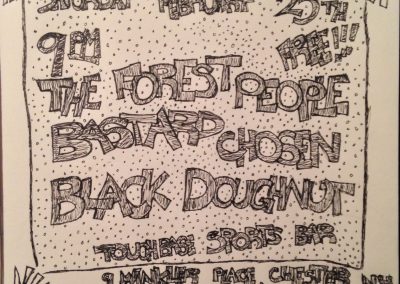 SATURDAY FEBRUARY 25TH
9 PM FREE!!!
THE FOREST PEOPLE
BASTARD CHOSEN
BLACK DOUGHNUT
TOUCH BASE SPORTS BAR
9 WINKLER PLACE, CHESTER NY